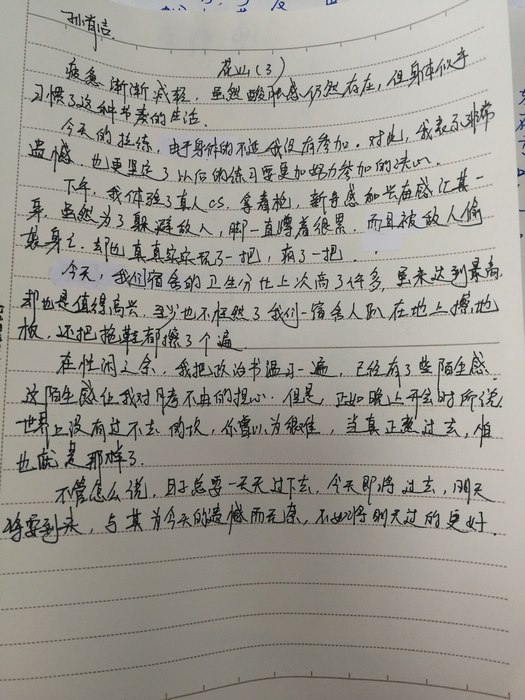 孙肖洁
花山(3)
疲惫渐渐减轻,虽然酸胀感仍然存在,但身体似乎
习惯了这种节奏的生活.
今天的拉练,由于身体的不适我没有参加.对此,我表示非常
遗憾.也更坚定了以后的练习要更加努力参加的决心.
下午,我体验了真人CS.拿着枪,新奇感加兴奋感汇集一
身.虽然为了躲避敌人,脚一直蹲着很累.而且被敌人偷
袭身亡.却也真真实实玩了一把,病了一把.
今天,我们宿舍的卫生分比上次高了许多,虽未达到最高,
却也是值得高兴.至少也不枉然了我们一宿舍人趴在地上擦地
板,还把拖鞋都擦了个遍.
在忙闲之余,我把政治书温习一遍.已经有了些陌生感.
这陌生感让我对月考不由的担心.但是,正如晚上开会时所说,
世界上没有过不去的坎,你曾以为很难,当真正熬过去,但
也就是那样了.
不管怎么说,日子总要一天天过下去.今天即将过去,明天
将要到来,与其为今天的遗憾而无奈,不如将明天过的更好.